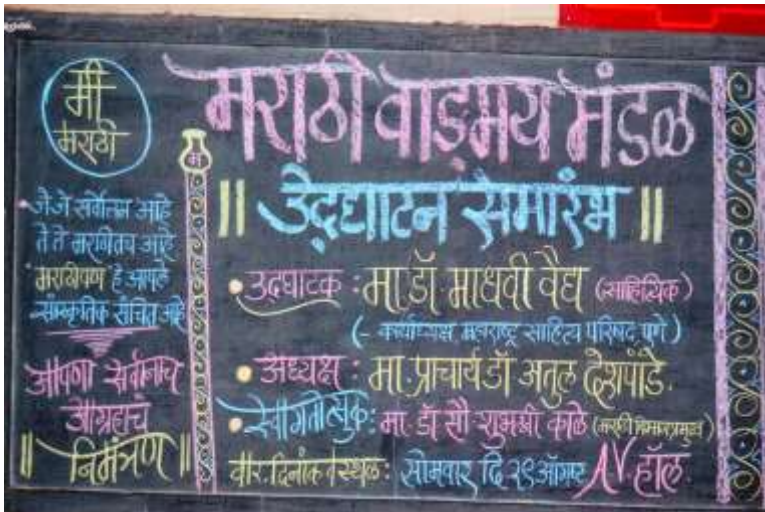 मी
मराठी
जे जे सर्वोत्तम आहे
ते ते मराठीतच आहे
मराठीपण हे आपले
सांस्कृतिक संचित आहे
आपणा सर्वांनाच
आग्रहाचं
॥ निमंत्रण ॥
म
मराठी वाङ्मय मंडळ
॥ उद्घाटन समारंभ ॥
• उद्घाटक : मा. डॉ. माधवी वैद्य (साहित्यिक)
(- कार्याध्यक्ष महाराष्ट्र साहित्य परिषद, पुणे)
• अध्यक्ष : मा. प्राचार्य डॉ अतुल देशपांडे.
• स्वागतोत्सुक : मा. डॉ सौ शुभश्री काळे (मराठी विभागप्रमुख)
वार. दिनांक व स्थळ : सोमवार दि २९ ऑगष्ट AV. हॉल.